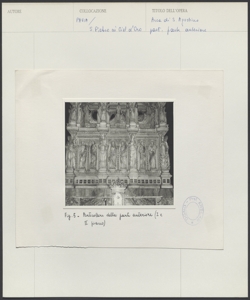 AUTORE COLLOCAZIONE TITOLO DELL'OPERA
PAVIA / Arca di S. Agostino
S. Pietro in Ciel d'Oro part. fronte anteriore
Fig. 8 - Particolare della parte anteriore (I e
II piano)